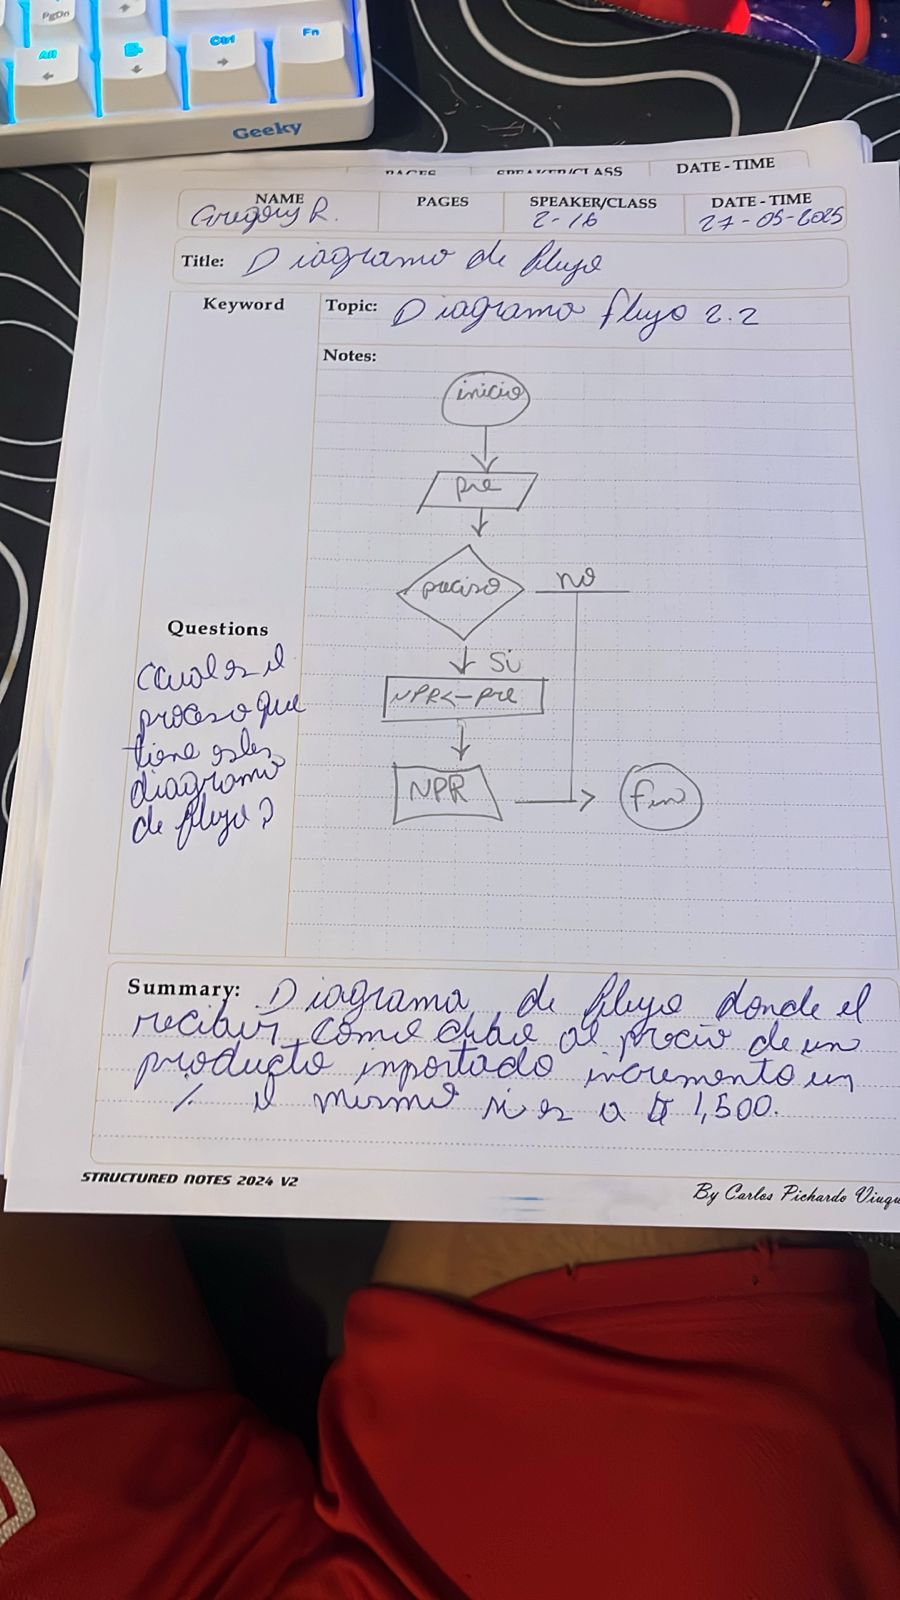 PgDn
Alt
Ctrl
Fn
Geeky
PAGES
SPEAKER/CLASS
DATE - TIME
NAME
Gregory R.
PAGES
SPEAKER/CLASS
2-16
DATE - TIME
27-05-2025
Title: Diagramo de flujo
Keyword
Topic: Diagramo flujo 2.2
Notes:
inicio
pre
preciso
no
Si
NPR<-pre
NPR
fin
Questions
Cual es el
proceso que
tiene este
diagramo
de flujo?
Summary: Diagrama de flujo donde el
recibir como clave al precio de un
producto inportado incremento un
% el mismo si es a $ 1,500.
STRUCTURED NOTES 2024 V2
By Carlos Pichardo Viuqu